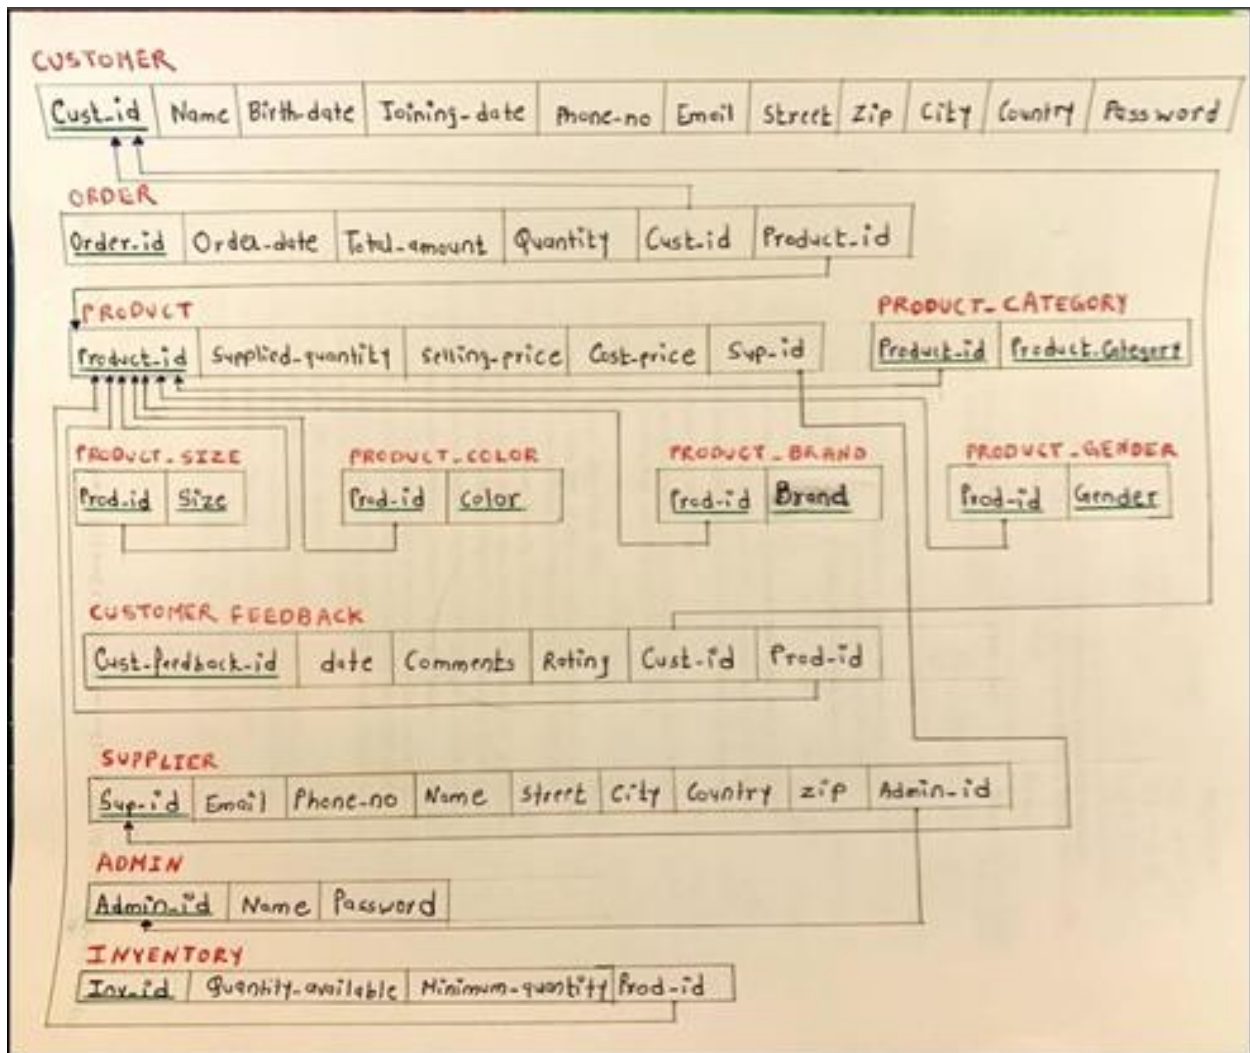 CUSTOMER
Cust_id Name Birth-date Joining-date Phone-no Email Street Zip City Country Password
ORDER
Order-id Order-date Total-amount Quantity Cust-id Product-id
PRODUCT
Product-id Supplied-quantity Selling-price Cost-price Sup-id
PRODUCT_CATEGORY
Product-id Product-Category
PRODUCT_SIZE
Prod-id Size
PRODUCT_COLOR
Prod-id Color
PRODUCT_BRAND
Prod-id Brand
PRODUCT_GENDER
Prod-id Gender
CUSTOMER FEEDBACK
Cust-feedback-id date Comments Rating Cust-id Prod-id
SUPPLIER
Sup-id Email Phone-no Name Street City Country zip Admin-id
ADMIN
Admin-id Name Password
INVENTORY
Inv-id Quantity-available Minimum-quantity Prod-id